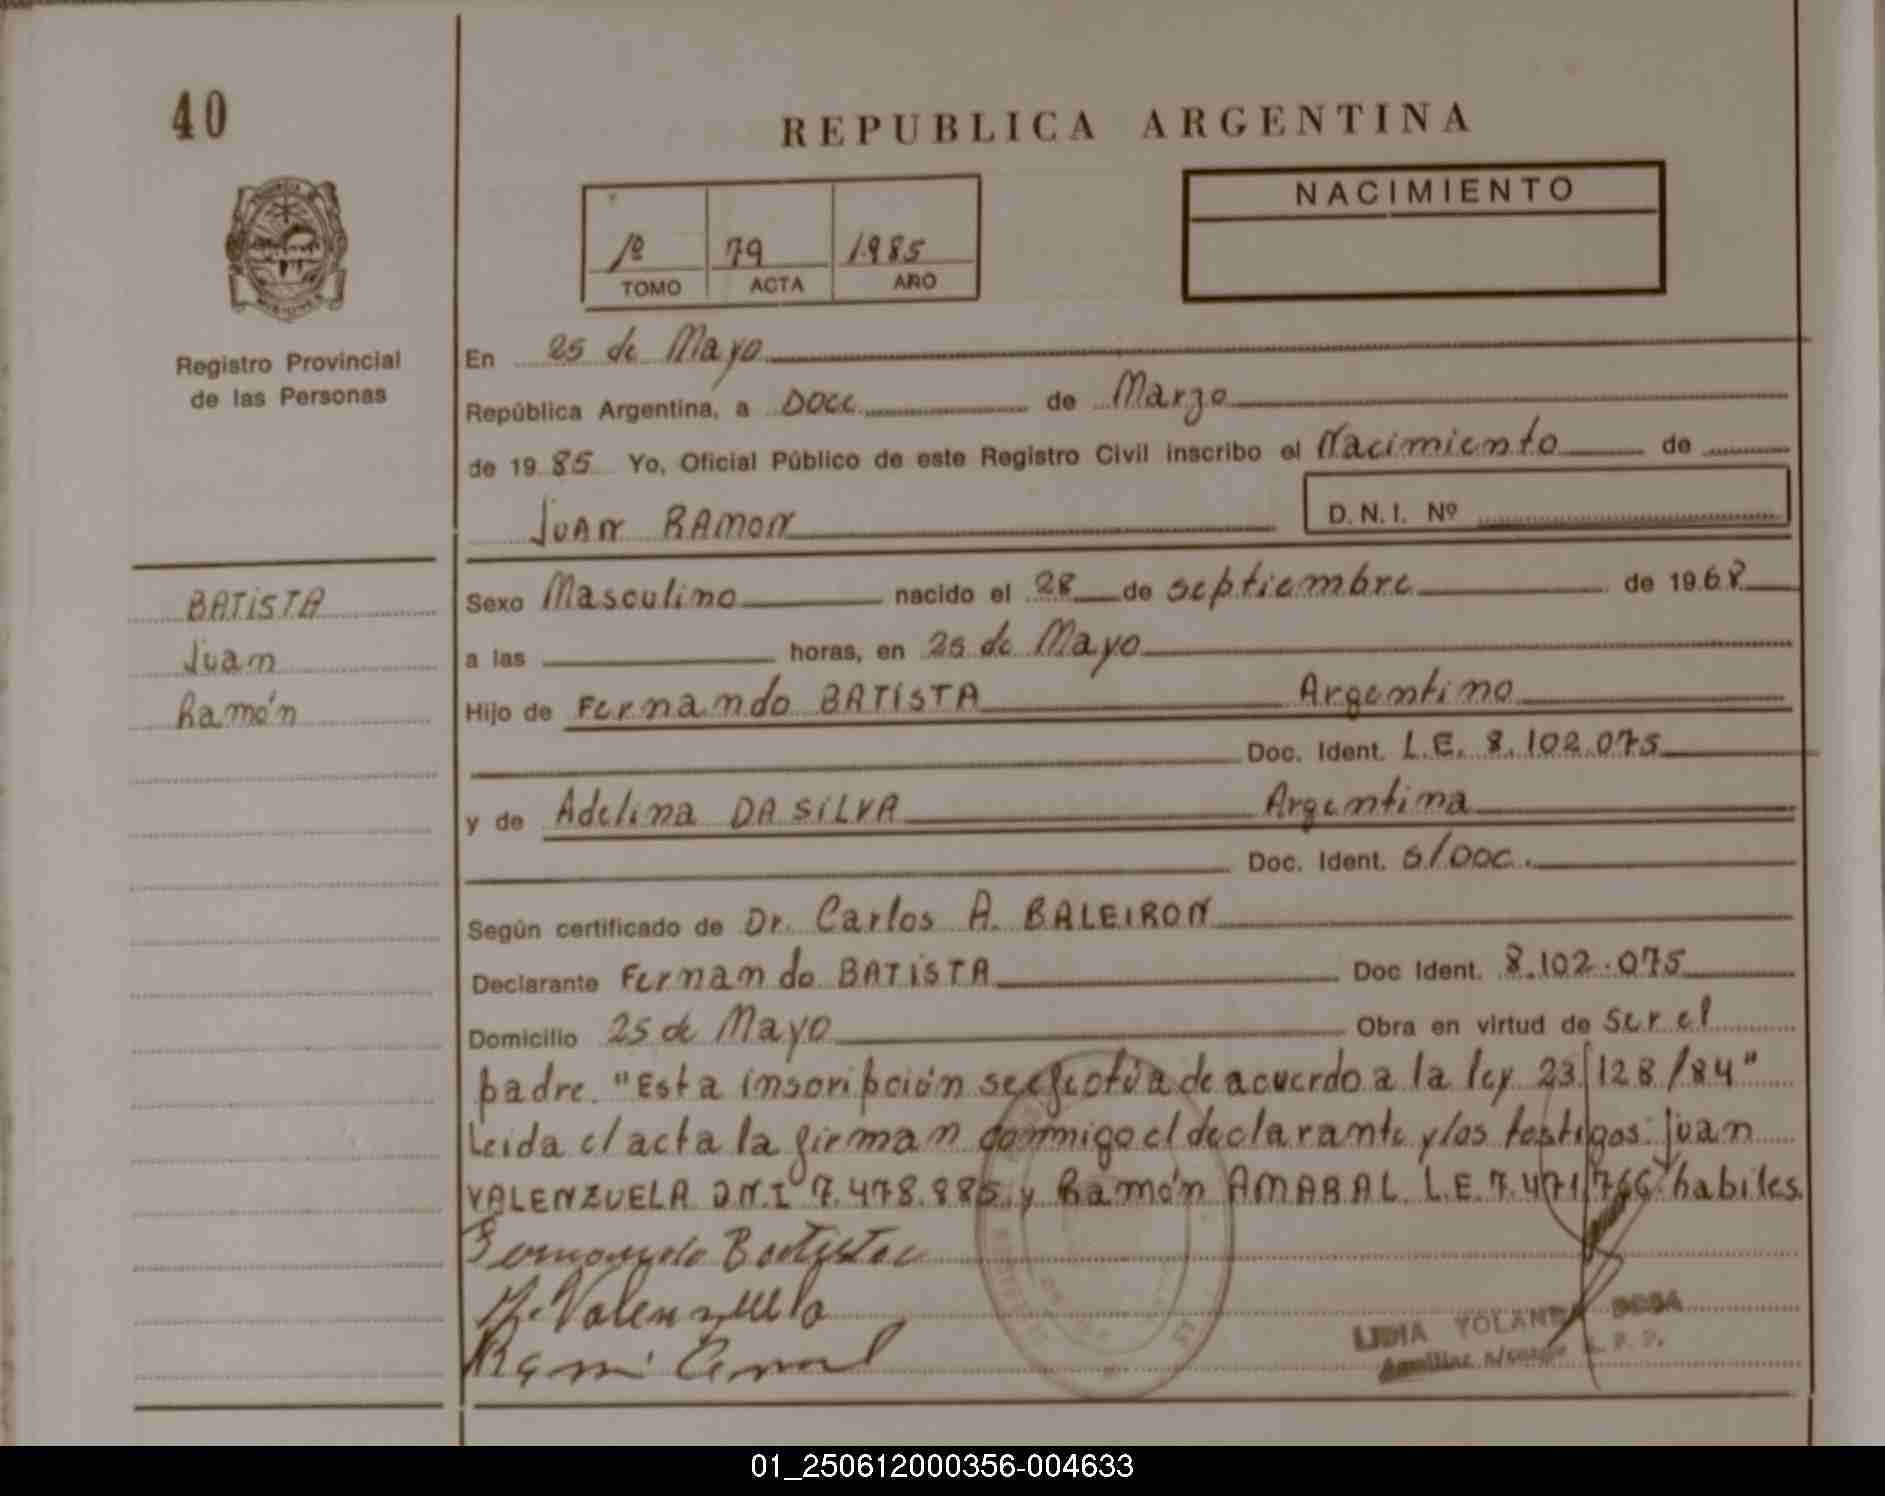 40
REPUBLICA ARGENTINA
NACIMIENTO
1º 79 1985
TOMO ACTA AÑO
Registro Provincial
de las Personas
En 25 de Mayo
República Argentina, a Doce de Marzo
de 1985 Yo, Oficial Público de este Registro Civil inscribo el Nacimiento de
JUAN RAMON D.N.I. Nº
BATISTA
Juan
Ramón
Sexo Masculino nacido el 28 de septiembre de 1968
a las horas, en 25 de Mayo
Hijo de Fernando BATISTA Argentino
Doc. Ident. L.E. 8.102.075
y de Adelina DA SILVA Argentina
Doc. Ident. S/Doc.
Según certificado de Dr. Carlos A. BALEIRON
Declarante Fernando BATISTA Doc Ident. 8.102.075
Domicilio 25 de Mayo Obra en virtud de Ser el
padre. "Esta inscripción se efectúa de acuerdo a la ley 23128/84"
Leida el acta la firman conmigo el declarante y los testigos: Juan
VALENZUELA D.N.I 7.478.885 y Ramón AMARAL L.E. 7.471.766 habiles.
Fernando Batista
Valenzuela
LIDIA YOLANDA
Auxiliar a/cargo R. P. P.
01_250612000356-004633